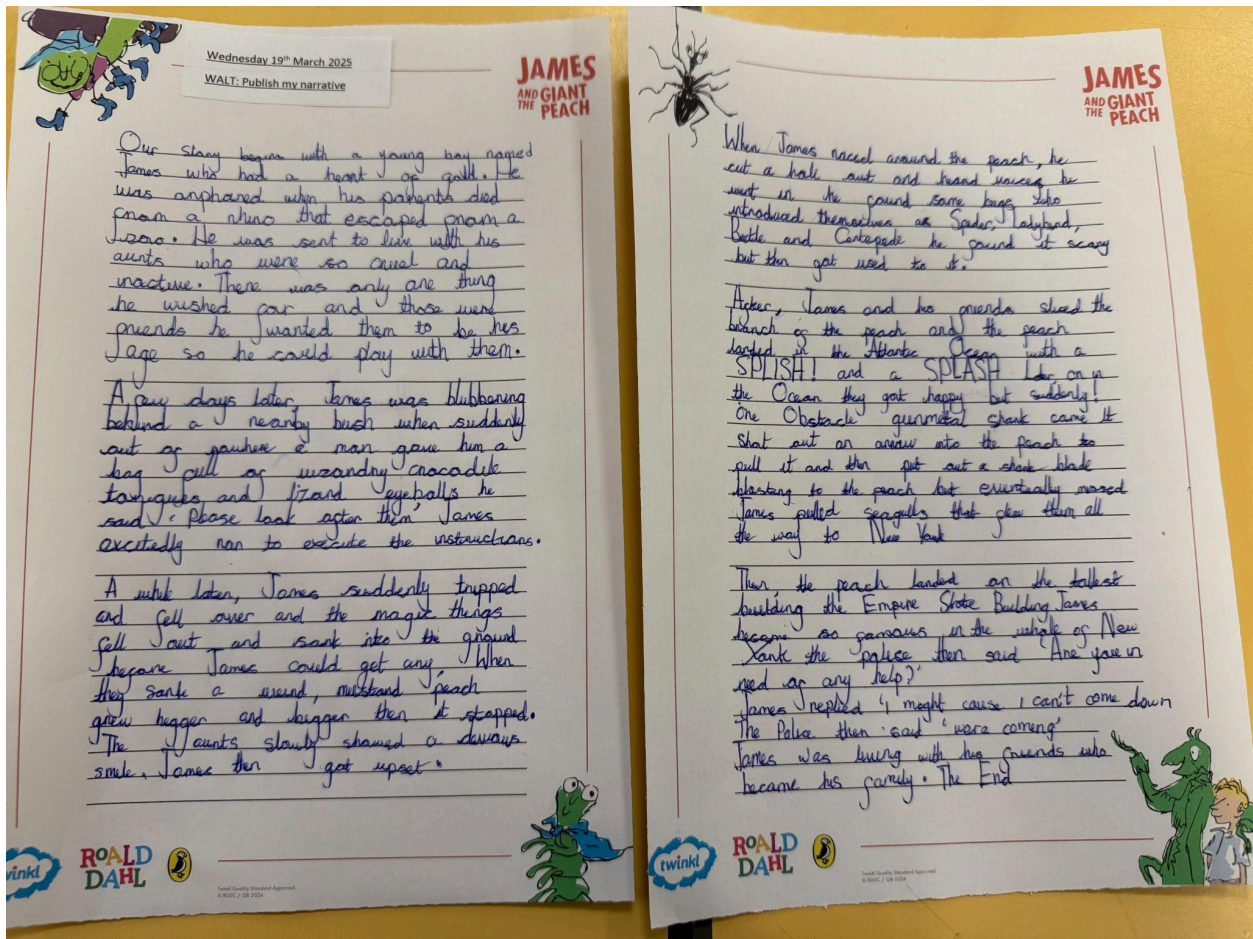 Wednesday 19th March 2025
WALT: Publish my narrative
JAMES
AND THE GIANT
PEACH
Our story begins with a young boy named
James who had a heart of gold. He
was orphaned when his parents died
from a rhino that escaped from a
zoo. He was sent to live with his
aunts who were so cruel and
inactive. There was only one thing
he wished for and those were
friends he wanted them to be his
age so he could play with them.
A few days later, James was blubbering
behind a nearby bush when suddenly
out of nowhere a man gave him a
bag full of wizandry crocodile
tongues and lizard eyeballs he
said 'Please look after them' James
excitedly ran to execute the instructions.
A while later, James suddenly tripped
and fell over and the magic things
fell out and sank into the ground
before James could get any, When
they sank a weird, peach
grew bigger and bigger then it stopped.
The aunts slowly showed a devious
smile. James then got upset.
twinkl
ROALD
DAHL
Twinkl Quality Standard Approved
© RDSC / QB 2024
JAMES
AND THE GIANT
PEACH
When James raced around the peach, he
cut a hole out and heard voices he
went in he found some bugs who
introduced themselves as Spider, Ladybird,
Beetle and Centepede he found it scary
but then got used to it.
After, James and his friends sliced the
branch of the peach and the peach
landed in the Atlantic Ocean with a
SPLISH! and a SPLASH Later on in
the Ocean they got happy but suddenly!
One Obstacle gunmetal shark came It
shot out an arrow into the peach to
pull it and then put out a shark blade
blasting to the peach but eventually missed
James pulled seagulls that flew them all
the way to New York
Then, the peach landed on the tallest
building the Empire State Building James
became so famous in the whole of New
York the police then said 'Are you in
need of any help?'
James replied 'I might cause I can't come down
The Police then said 'were coming'
James was living with his friends who
became his family. The End
twinkl
ROALD
DAHL
Twinkl Quality Standard Approved
© RDSC / QB 2024